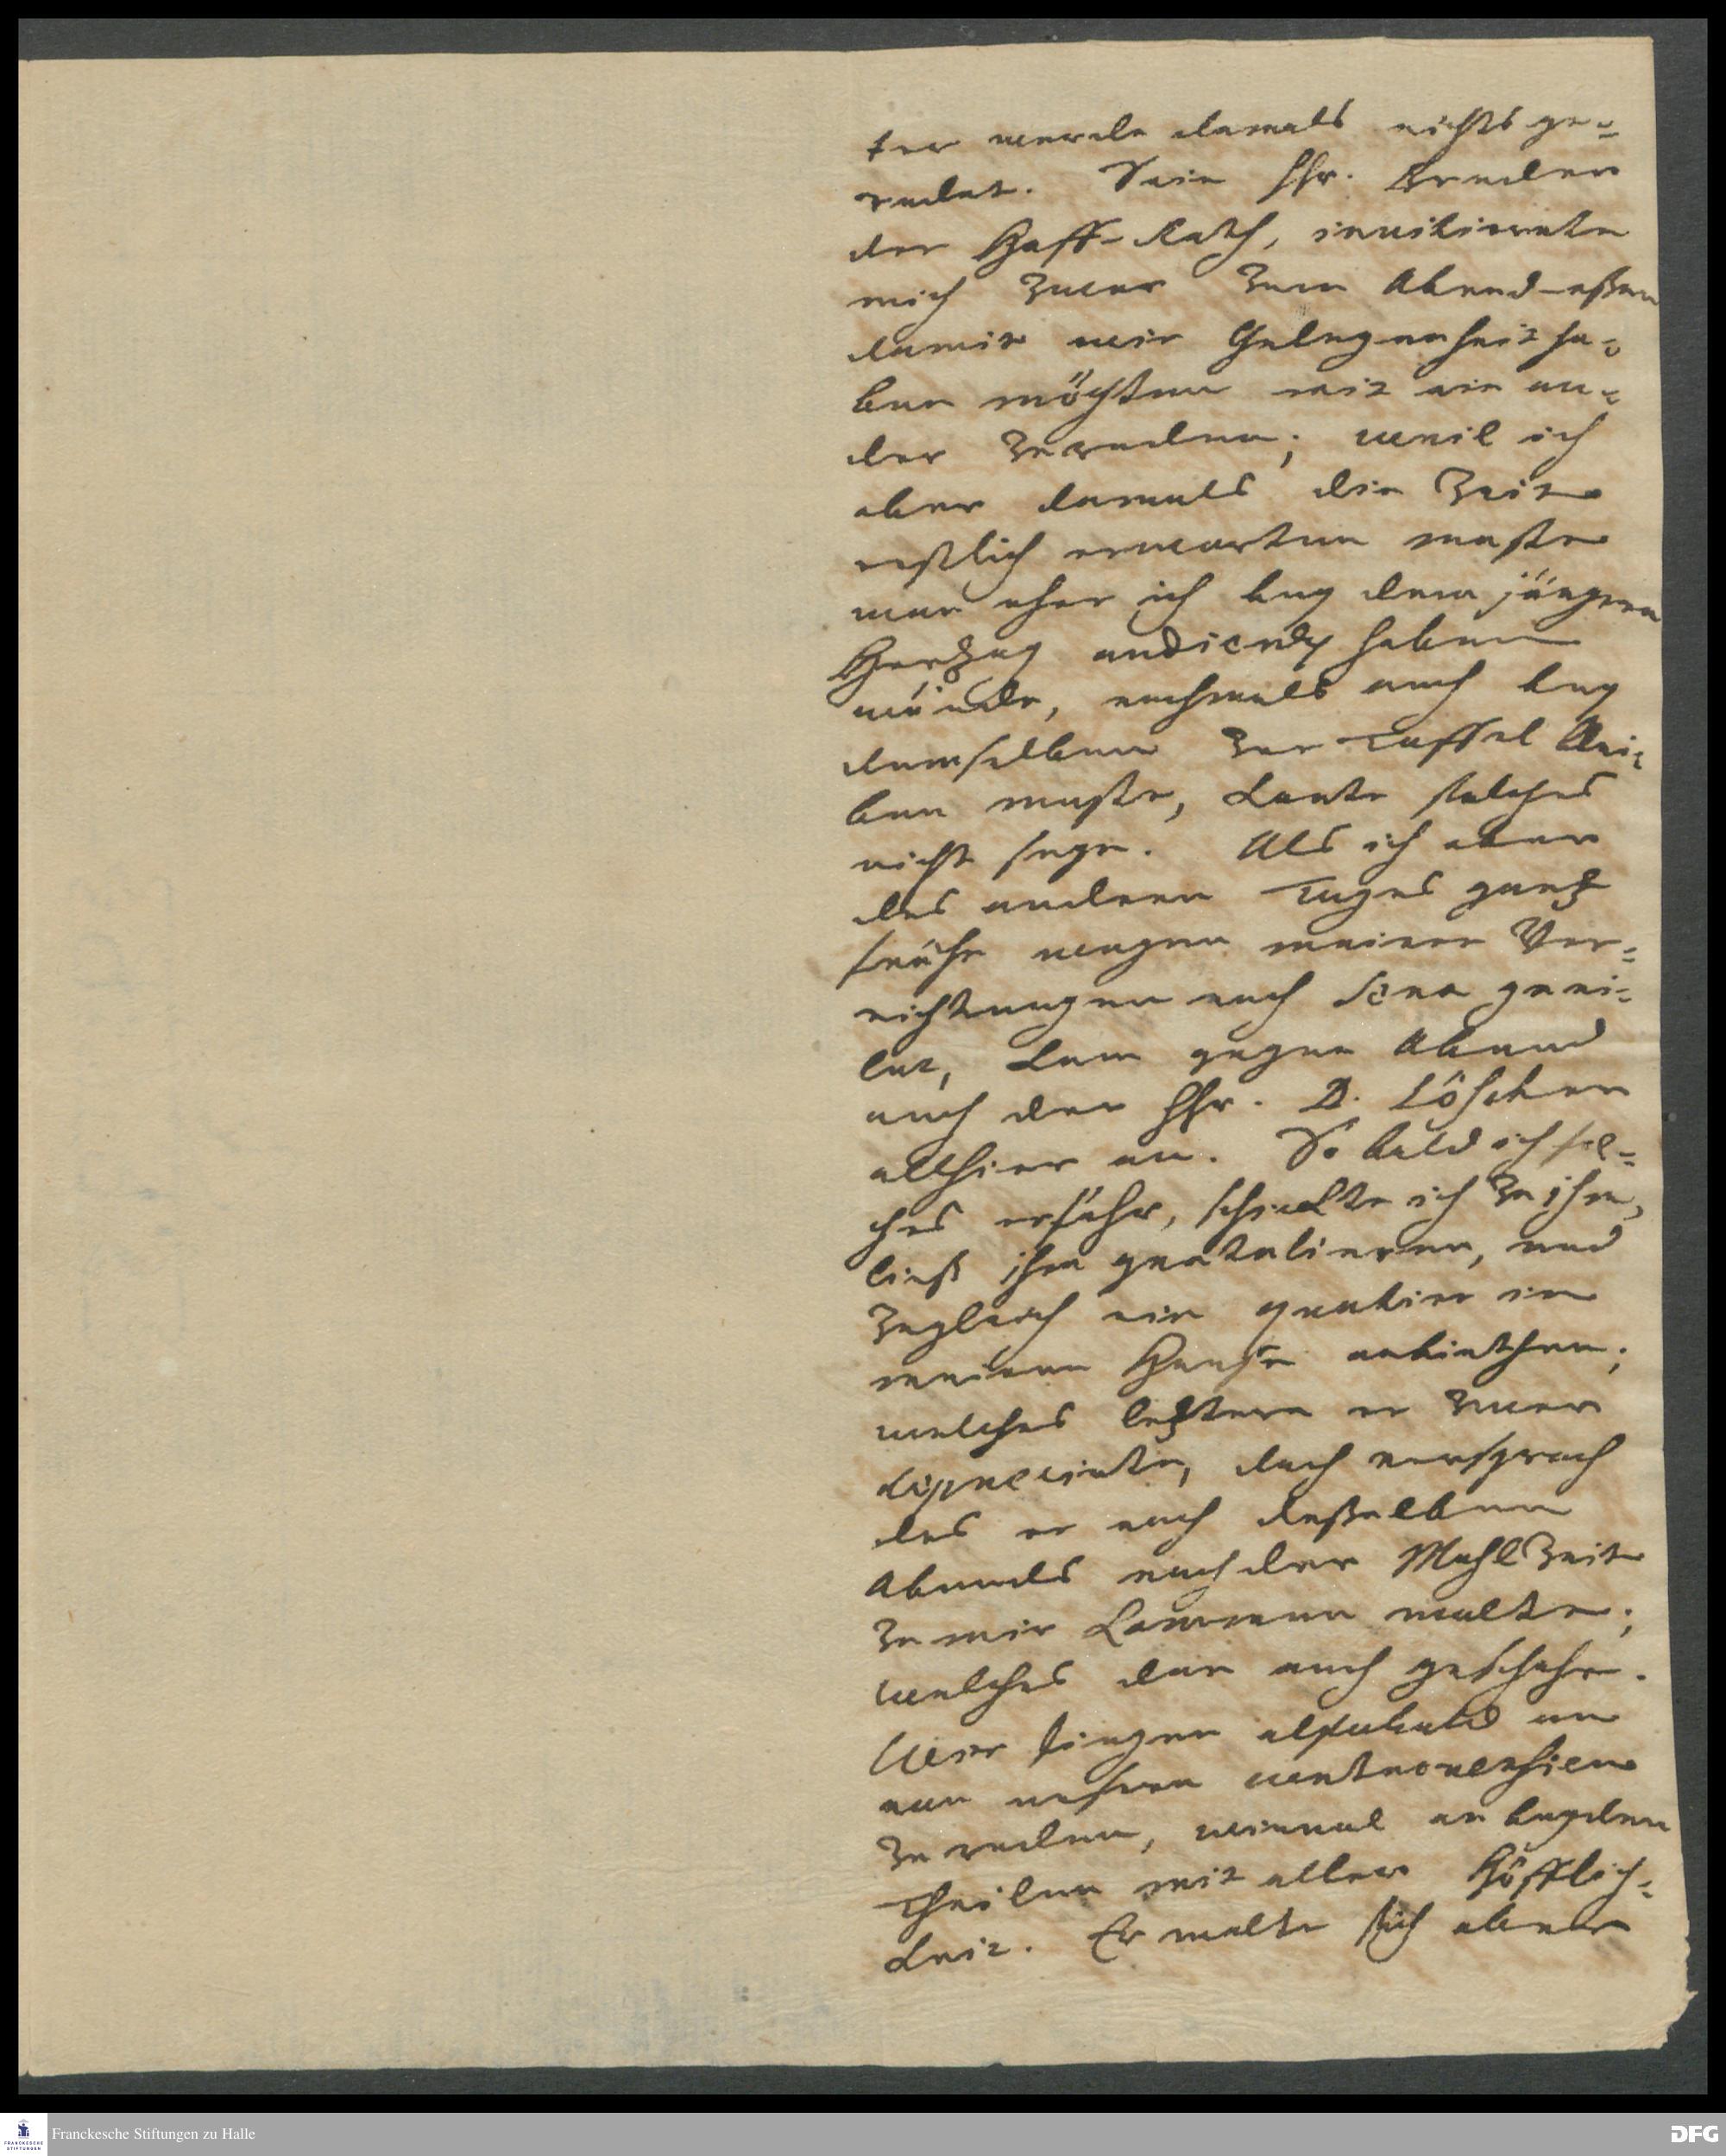 ter wurde damals nichts ge-
redet. Sein Hr. Bruder
der Hoff-Rath, invitirete
mich zwar zum Abend-eßen
damit wir Gelegenheit ha-
ben möchten mit ein an-
der zu reden; weil ich
aber damals die Zeit
erstlich erwarten muste
wan eher ich bey dem jüngern
Hertzog audientz haben
würde, nachmals auch bey
demselben zur Taffel blei-
ben muste, konte solches
nicht seyn. Als ich aber
des andern Tages gantz
frühe wegen meiner Ver-
richtungen nach Jena geei-
let, kam gegen Abend
auch der Hr. D. Löscher
allhier an. So bald ich sol-
ches erfuhr, schickte ich zu ihm,
ließ ihm gratulieren, und
zugleich ein quatier in
meinem Hause anbiethen;
welches letztere er zwar
deprecirte, doch versprach
das er noch deßelben
Abends nach der Mahlzeit
zu mir kommen wolte;
welches dan auch geschahe.
Wir fingen alsobald an
von unsern controversien
zu reden, wiewol an beyden
Theilen mit aller Höfflich-
keit. Er wolte sich aber
Franckesche Stiftungen zu Halle
FRANCKESCHE STIFTUNGEN
DFG